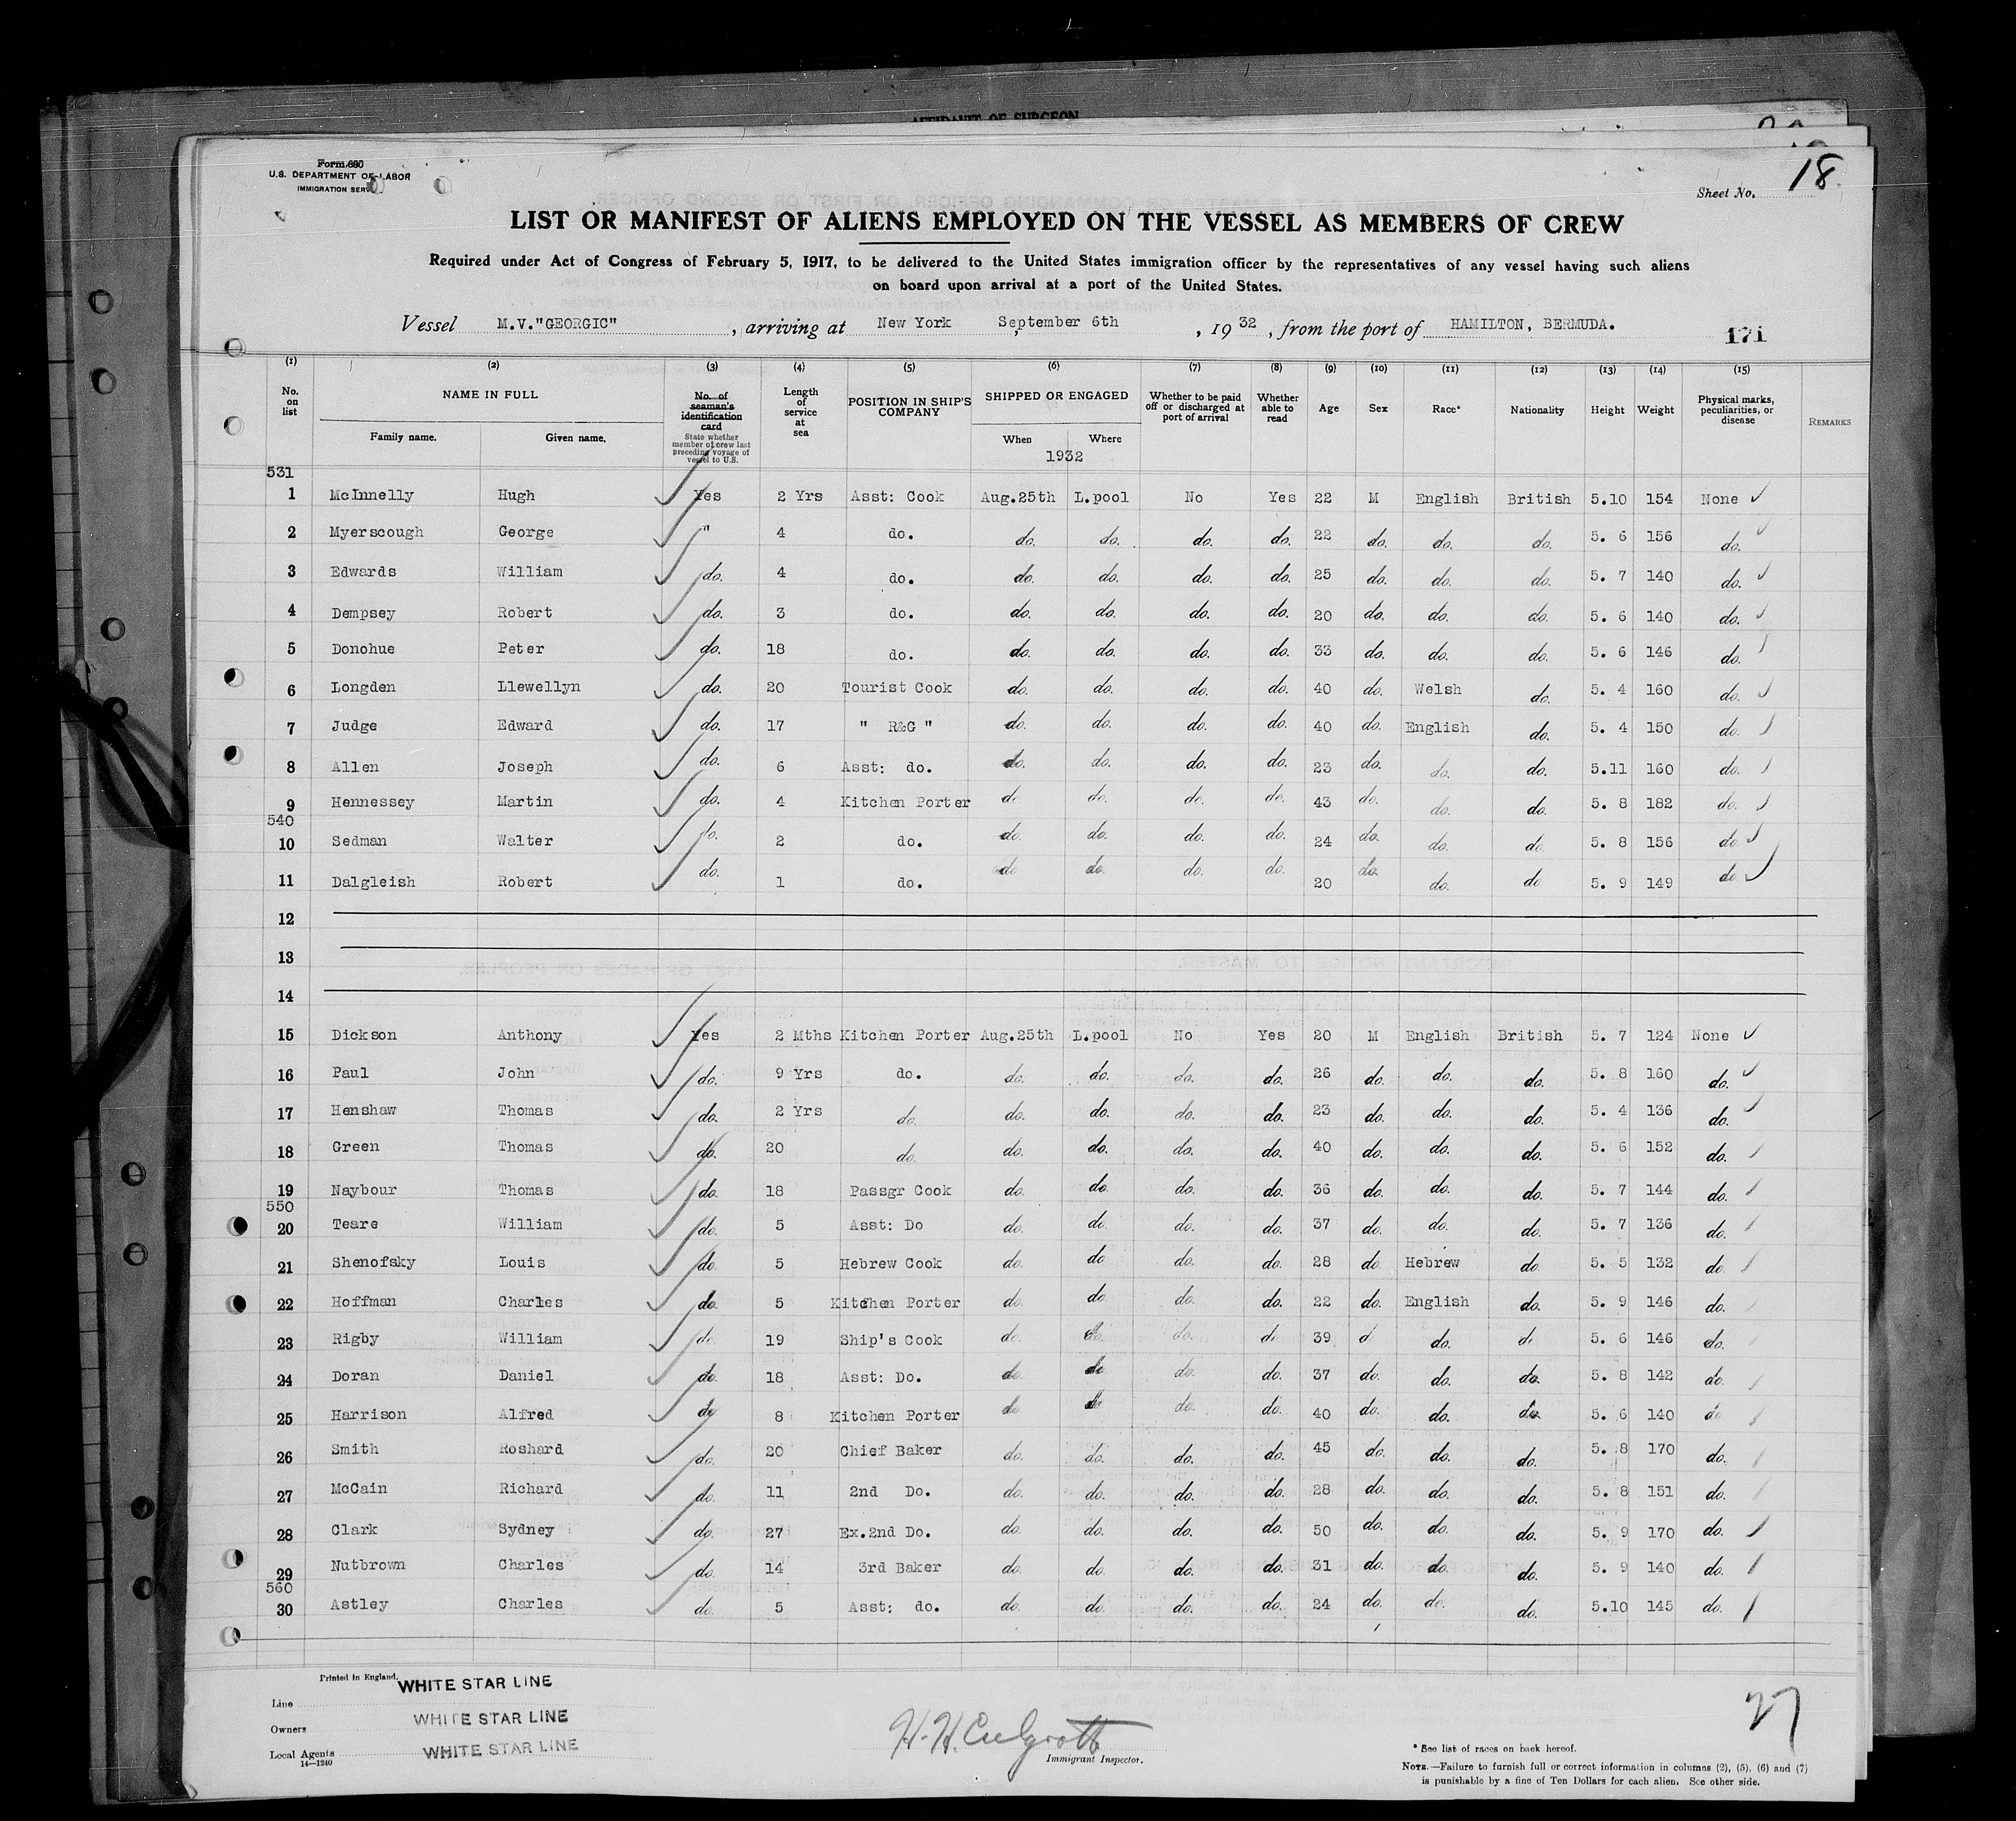 AFFIDAVIT OF SURGEON
Form 680
U.S. DEPARTMENT OF LABOR
IMMIGRATION SERV
Sheet No. 18
LIST OR MANIFEST OF ALIENS EMPLOYED ON THE VESSEL AS MEMBERS OF CREW
Required under Act of Congress of February 5, 1917, to be delivered to the United States immigration officer by the representatives of any vessel having such aliens
on board upon arrival at a port of the United States.
Vessel M.V."GEORGIC", arriving at New York September 6th, 1932, from the port of HAMILTON, BERMUDA.
171
(1) (2) (3) (4) (5) (6) (7) (8) (9) (10) (11) (12) (13) (14) (15)
No. on list NAME IN FULL Family name. Given name. No. of seaman's identification card State whether member of crew last preceding voyage of vessel to U.S. Length of service at sea POSITION IN SHIP'S COMPANY SHIPPED OR ENGAGED When Where 1932 Whether to be paid off or discharged at port of arrival Whether able to read Age Sex Race* Nationality Height Weight Physical marks, peculiarities, or disease REMARKS
531
1 McInnelly Hugh Yes 2 Yrs Asst: Cook Aug.25th L.pool No Yes 22 M English British 5.10 154 None
2 Myerscough George " 4 do. do. do. do. do. 22 do. do. do. 5. 6 156 do.
3 Edwards William do. 4 do. do. do. do. do. 25 do. do. do. 5. 7 140 do.
4 Dempsey Robert do. 3 do. do. do. do. do. 20 do. do. do. 5. 6 140 do.
5 Donohue Peter do. 18 do. do. do. do. do. 33 do. do. do. 5. 6 146 do.
6 Longden Llewellyn do. 20 Tourist Cook do. do. do. do. 40 do. Welsh do. 5. 4 160 do.
7 Judge Edward do. 17 " R&G " do. do. do. do. 40 do. English do. 5. 4 150 do.
8 Allen Joseph do. 6 Asst: do. do. do. do. do. 23 do. do. do. 5.11 160 do.
9 Hennessey Martin do. 4 Kitchen Porter do. do. do. do. 43 do. do. do. 5. 8 182 do.
540
10 Sedman Walter do. 2 do. do. do. do. do. 24 do. do. do. 5. 8 156 do
11 Dalgleish Robert do. 1 do. do do. do. do. 20 do. do. do 5. 9 149 do
12
13
14
15 Dickson Anthony Yes 2 Mths Kitchen Porter Aug.25th L.pool No Yes 20 M English British 5. 7 124 None
16 Paul John do. 9 Yrs do. do. do. do. do. 26 do. do. do. 5. 8 160 do.
17 Henshaw Thomas do. 2 Yrs do. do. do. do. do. 23 do. do. do. 5. 4 136 do.
18 Green Thomas do. 20 do. do. do. do. do. 40 do. do. do. 5. 6 152 do.
19 Naybour Thomas do. 18 Passgr Cook do. do. do. do. 36 do. do. do. 5. 7 144 do.
550
20 Teare William do. 5 Asst: Do do. do. do. do. 37 do. do. do. 5. 7 136 do.
21 Shenofsky Louis do. 5 Hebrew Cook do. do do. do. 28 do Hebrew do 5. 5 132 do.
22 Hoffman Charles do. 5 Kitchen Porter do. do do. do. 22 do. English do. 5. 9 146 do.
23 Rigby William do. 19 Ship's Cook do. do. do. do 39 d do. do 5. 6 146 do.
24 Doran Daniel do. 18 Asst: Do. do do do. do. 37 do. do. do. 5. 8 142 do.
25 Harrison Alfred do 8 Kitchen Porter do do do. do. 40 do. do. do 5. 6 140 do
26 Smith Roshard do. 20 Chief Baker do. do. do. do. 45 do. do. do. 5. 8 170 do.
27 McCain Richard do. 11 2nd Do. do. do. do. do. 28 do. do. do. 5. 8 151 do.
28 Clark Sydney do. 27 Ex.2nd Do. do. do. do. do. 50 do. do. do. 5. 9 170 do.
29 Nutbrown Charles do. 14 3rd Baker do. do. do. do. 31 do. do. do. 5. 9 140 do.
560
30 Astley Charles do. 5 Asst: do. do. do. do. do. 24 do. do. do. 5.10 145 do.
Printed in England.
Line WHITE STAR LINE
Owners WHITE STAR LINE
Local Agents WHITE STAR LINE
14—1240
Immigrant Inspector.
27
* See list of races on back hereof.
NOTE.—Failure to furnish full or correct information in columns (2), (5), (6) and (7)
is punishable by a fine of Ten Dollars for each alien. See other side.